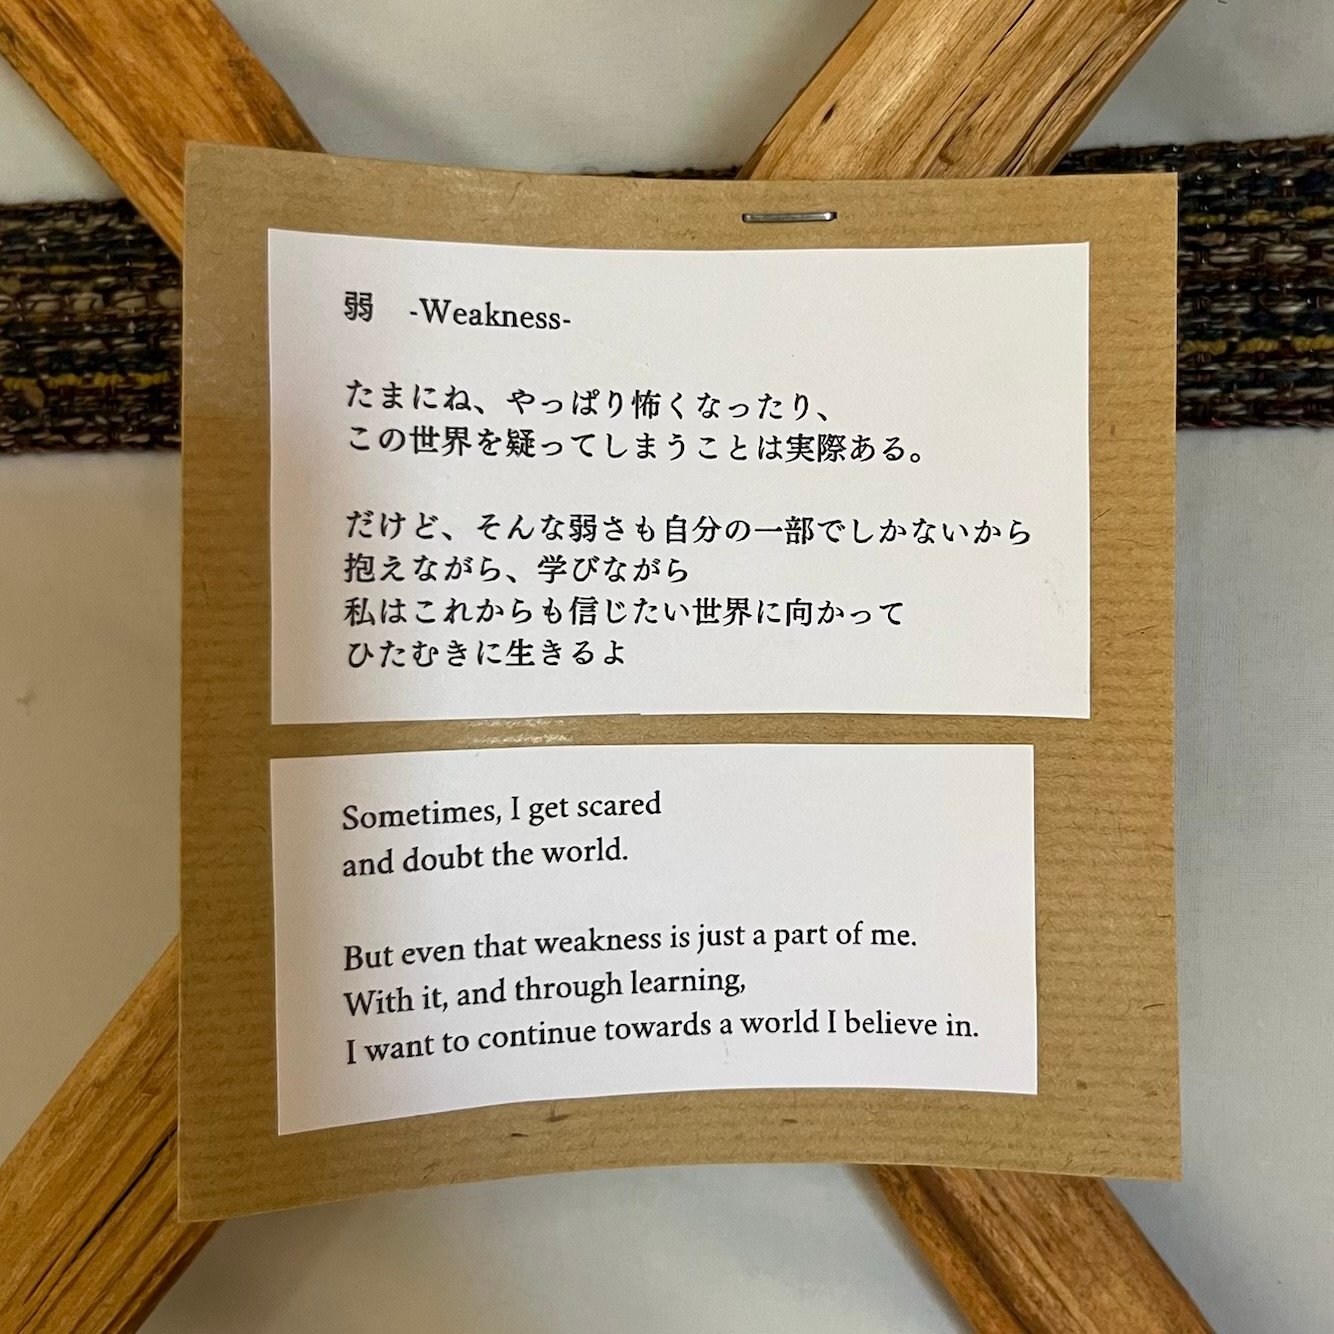 弱　-Weakness-
たまにね、やっぱり怖くなったり、
この世界を疑ってしまうことは実際ある。
だけど、そんな弱さも自分の一部でしかないから
抱えながら、学びながら
私はこれからも信じたい世界に向かって
ひたむきに生きるよ
Sometimes, I get scared
and doubt the world.
But even that weakness is just a part of me.
With it, and through learning,
I want to continue towards a world I believe in.